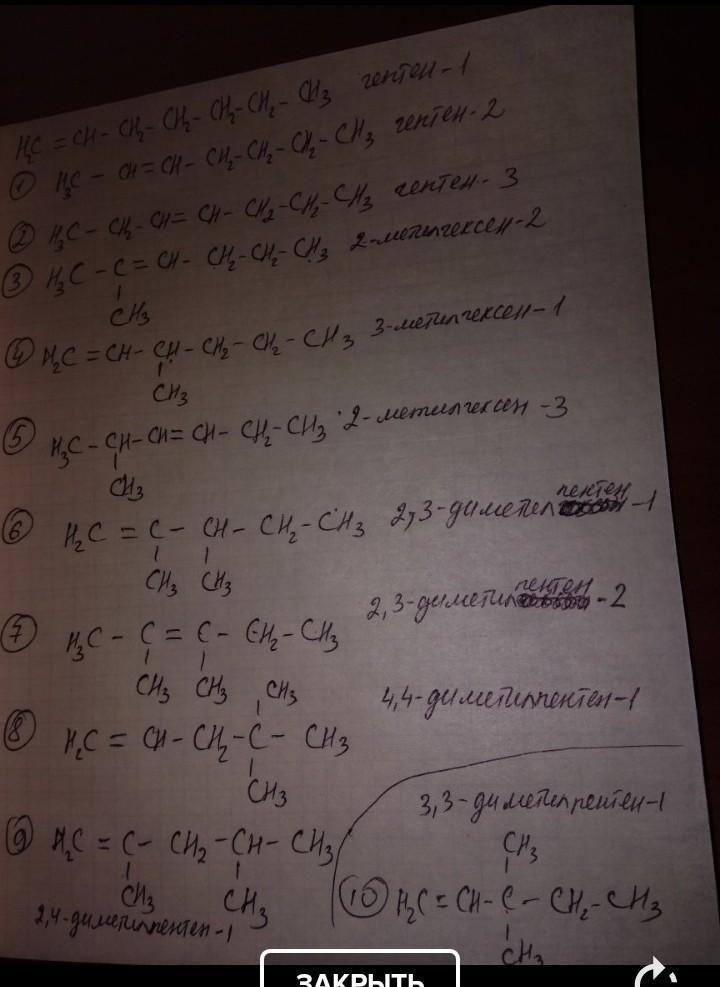 H₂C = CH - CH₂ - CH₂ - CH₂ - CH₂ - CH₃ гептен-1
① H₃C - CH = CH - CH₂ - CH₂ - CH₂ - CH₃ гептен-2
② H₃C - CH₂ - CH = CH - CH₂ - CH₂ - CH₃ гептен-3
③ H₃C - C = CH - CH₂ - CH₂ - CH₃ 2-метилгексен-2
CH₃
④ H₂C = CH - CH - CH₂ - CH₂ - CH₃ 3-метилгексен-1
CH₃
⑤ H₃C - CH - CH = CH - CH₂ - CH₃ 2-метилгексен-3
CH₃
⑥ H₂C = C - CH - CH₂ - CH₃ 2,3-диметилпентен-1
CH₃ CH₃
2,3-диметилпентен-2
⑦ H₃C - C = C - CH₂ - CH₃
CH₃ CH₃
CH₃ 4,4-диметилпентен-1
⑧ H₂C = CH - CH₂ - C - CH₃
CH₃
3,3-диметилпентен-1
⑨ H₂C = C - CH₂ - CH - CH₃
CH₃ CH₃
2,4-диметилпентен-1
CH₃
⑩ H₂C = CH - C - CH₂ - CH₃
CH₃
ЗАКРЫТЬ